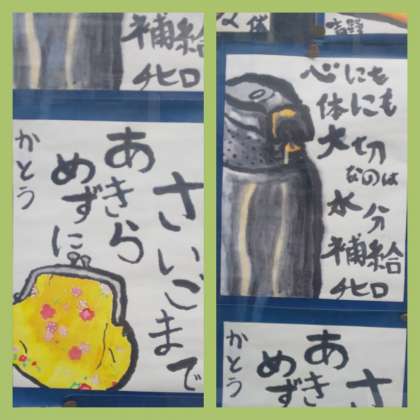 補給
チヒロ
さいごまで
あきら
めずに
かとう
心にも
体にも
大切
なのは
水分
補給
チヒロ
さ
あき
めず
かとう